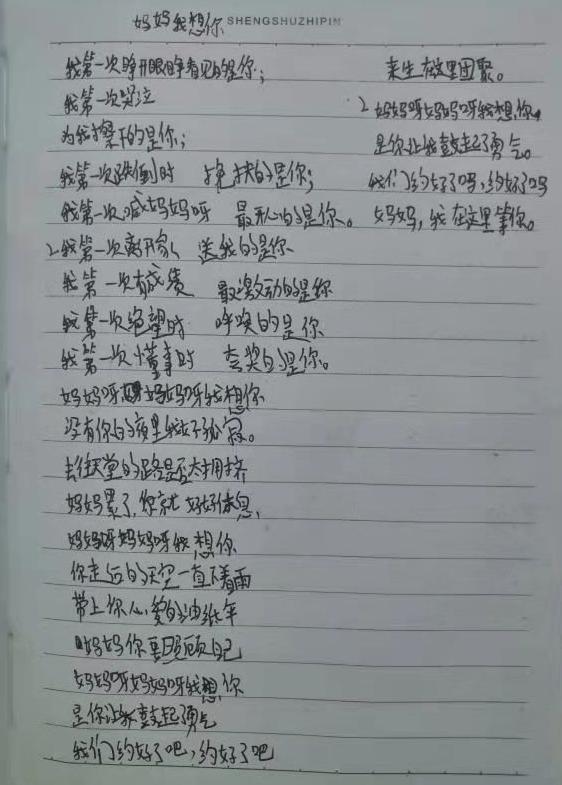 妈妈我想你
SHENGSHUZHIPIN
我第一次睁开眼睁看见的是你；
我第一次哭泣
为我擦干的是你；
我第一次跌倒时 挽扶的是你；
我第一次喊妈妈呀 最开心的是你。
2、我第一次离开家 送我的是你
我第一次有成绩 最激动的是你
我第一次绝望时 呼唤的是你
我第一次懂事时 夸奖的是你。
妈妈呀妈妈呀我想你
没有你的夜里我好孤寂。
去往天堂的路是否太拥挤
妈妈累了，你就好好休息，
妈妈呀妈妈呀我想你
你走后的天空一直下着雨
带上你心爱的油纸伞
妈妈你要照顾自己
妈妈呀妈妈呀我想你
是你让我鼓起勇气
我们约好了吧，约好了吧
来生在这里团聚。
2、妈妈呀妈妈呀我想你。
是你让我鼓起了勇气。
我们约好了吗，约好了吗
妈妈，我在这里等你。